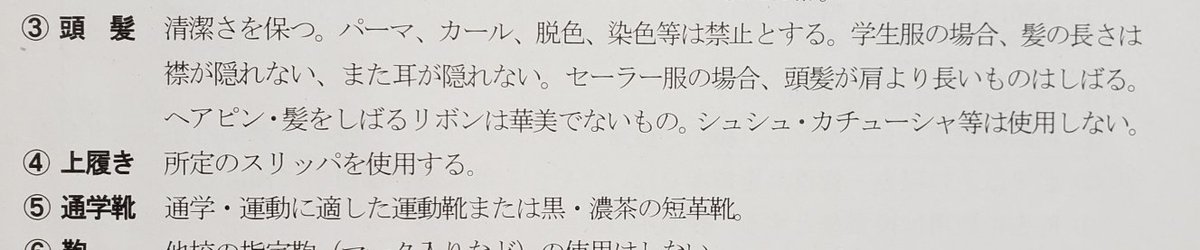 ③ 頭 髪 清潔さを保つ。パーマ、カール、脱色、染色等は禁止とする。学生服の場合、髪の長さは
襟が隠れない、また耳が隠れない。セーラー服の場合、頭髪が肩より長いものはしばる。
ヘアピン・髪をしばるリボンは華美でないもの。シュシュ・カチューシャ等は使用しない。
④ 上履き 所定のスリッパを使用する。
⑤ 通学靴 通学・運動に適した運動靴または黒・濃茶の短革靴。
⑥ 鞄 他校の指定鞄（マーク入りなど）の使用はしない。